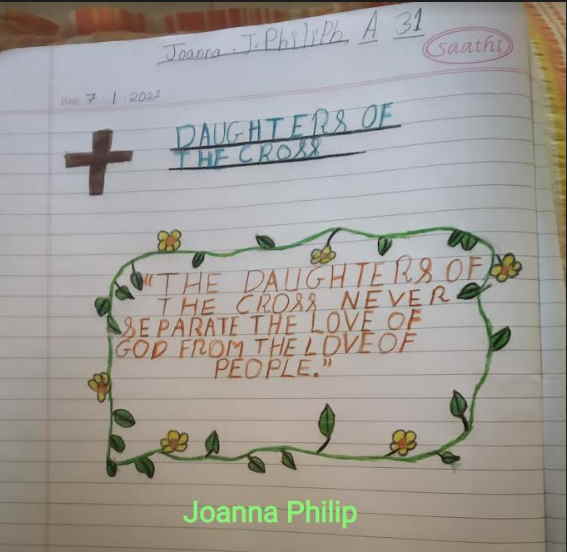 Joanna . J. Philiph A 31
saathi
7 | 1 2022
DAUGHTERS OF
THE CROSS
"THE DAUGHTERS OF
THE CROSS NEVER
SEPARATE THE LOVE OF
GOD FROM THE LOVE OF
PEOPLE."
Joanna Philip